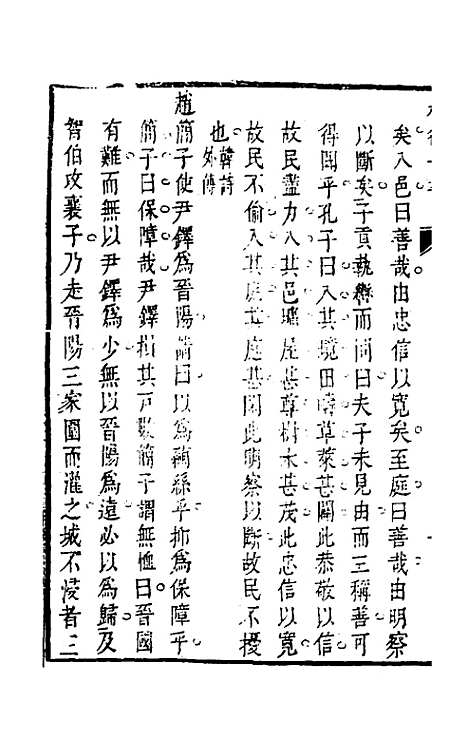 矣入邑曰善哉由忠信以寬矣至庭曰善哉由明察
以斷矣子貢執轡而問曰夫子未見由而三稱善可
得聞乎孔子曰入其境田疇草萊甚闢此恭敬以信
故民盡力入其邑墉屋甚尊樹木甚茂此忠信以寬
故民不偷入其庭其庭甚閑此明察以斷故民不擾
也韓詩外傳
趙簡子使尹鐸為晉陽請曰以為繭絲乎抑為保障乎
簡子曰保障哉尹鐸損其戶數簡子謂無恤曰晉國
有難而無以尹鐸為少無以晉陽為遠必以為歸及
智伯攻襄子乃走晉陽三家圍而灌之城不浸者三